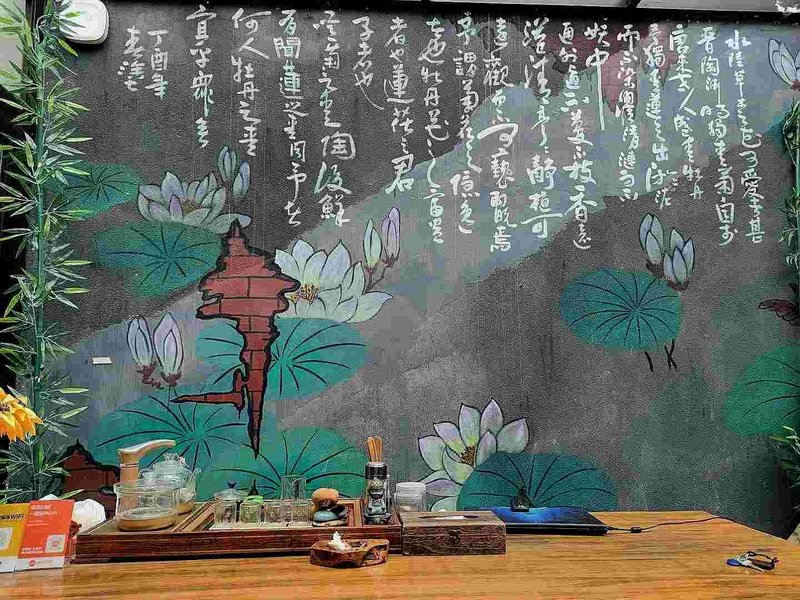 水陸草木之花可爱者甚
晋陶渊明獨爱菊自李
唐来世人盛爱牡丹
予獨爱蓮之出淤泥
而不染濯清漣而不
妖中
通外直不蔓不枝香遠
益清亭亭静植可
遠觀而不可褻翫焉
予謂菊花之隐逸
者也牡丹花之富贵
者也蓮花之君
子者也
噫菊之爱陶後鮮
有聞蓮之爱同予者
何人牡丹之爱
宜乎眾矣
丁酉年